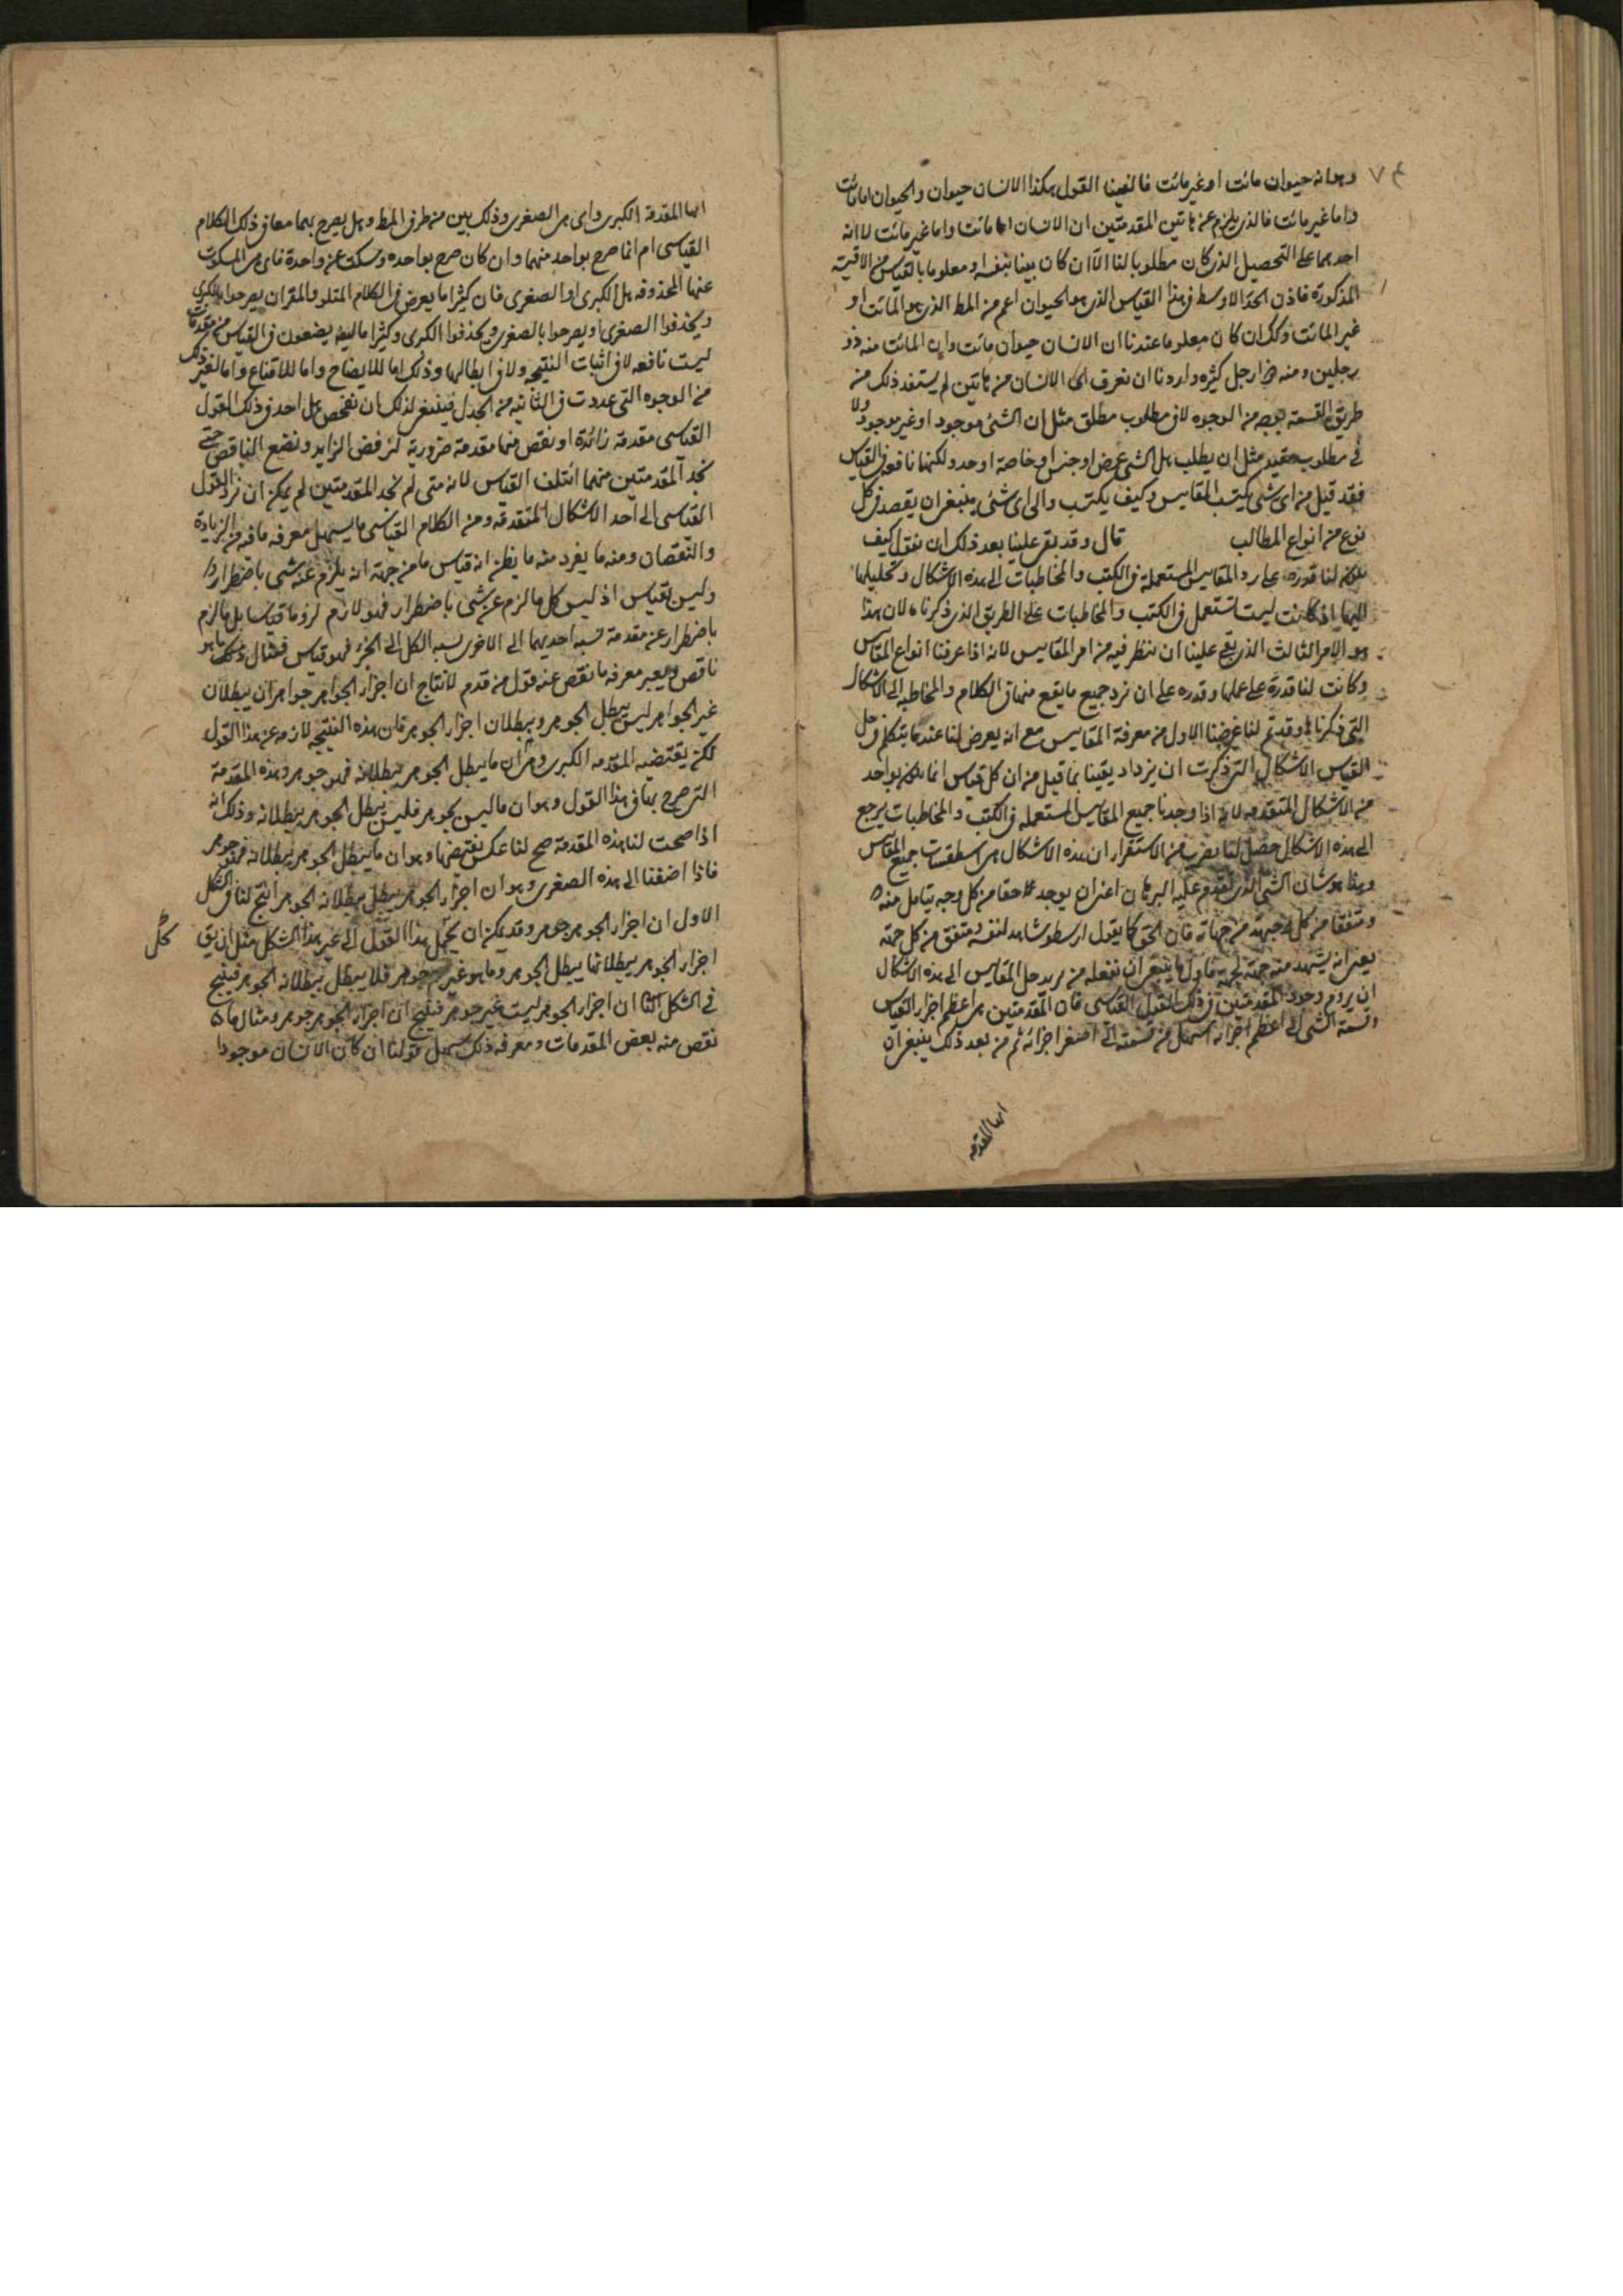 وهو انه حيوان مائت او غير مائت فالفينا القول هكذا الانسان حيوان والحيوان اما مائت
واما غير مائت فالذى يلزم عنه هاتين المقدمتين ان الانسان اما مائت واما غير مائت لا انه
احدهما على التحصيل الذى كان مطلوبا لنا الا ان كان بينا بنفسه او معلوما بالقياس من الاقيسة
المذكورة فاذن الحد الاوسط فى هذا القياس الذى هو الحيوان اعم من المط الذى هو المائت او
غير المائت وكك ان كان معلوما عندنا ان الانسان حيوان مائت وان المائت منه ذو
رجلين ومنه ذو ارجل كثيره واردنا ان نعرف اى الانسان من هاتين لم يستفد ذلك من
طريق القسمة بوجه من الوجوه لا فى مطلوب مطلق مثل ان الشئ موجود او غير موجود ولا
فى مطلوب مقيد مثل ان يطلب هل الشى عرض او جنس او خاصة او حد ولكنها نافعه فى القياس
فقد قيل من اى شى يكتسب المقاييس وكيف يكتسب والى اى شئ ينبغى ان يقصد فى كل
نوع من انواع المطالب قال وقد بقى علينا بعد ذلك ان نقول كيف
يكون لنا قدرة على رد المقاييس المستعملة فى الكتب والمخاطبات الى هذه الاشكال وتحليلها
اليها اذ كانت ليست تستعمل فى الكتب والمخاطبات على الطريق الذى ذكرنا لان هذا
هو الامر الثالث الذى بقى علينا ان ننظر فيه من امر المقاييس لانه اذا عرفنا انواع المقاييس
وكانت لنا قدرة على عملها وقدره على ان نرد جميع ما يقع منها فى الكلام والمخاطبه الى الاشكال
التى ذكرنا وقد تم لنا غرضنا الاول من معرفة المقاييس مع انه يعرض لنا عندما يتكلم فى حل
القياس الاشكال التى ذكرت ان يزداد يقينا بما قيل من ان كل قياس انما يكون بواحد
من الاشكال المتقدمه لانه اذا وجدنا جميع المقاييس المستعمله فى الكتب والمخاطبات يرجع
الى هذه الاشكال حصل لنا بضرب من الاستقراء ان هذه الاشكال هى اسطقسات جميع المقاييس
وهذا هو شان الشى الذى تقدم عليه البرهان اعنى ان يوجد حقا من كل وجه يتامل منه
ومتفقا من كل جهة من جهاته فان الحق كما يقول ارسطو شاهد لنفسه ومتفق من كل جهة
يعنى انه يشهد منه جهة لجهة فاول ما ينبغى ان نفعله من يريد حل المقاييس الى هذه الاشكال
ان يروم وجود المقدمتين فى ذلك القول القياسى فان المقدمتين هى اعظم اجزاء القياس
وقسمة الشى الى اعظم اجزائه اسهل من قسمته الى اصغر اجزائه ثم من بعد ذلك ينبغى ان
ايها المقدمه
ايها المقدمة الكبرى واى هى الصغرى وذلك بين من طرفى المط وهل يصرح بهما معا فى ذلك الكلام
القياسى ام انما صرح بواحد منهما وان كان صرح بواحده وسكت عن واحدة فاى هى المسكوت
عنها المحذوفه هل الكبرى او الصغرى فان كثيرا ما يعرض فى الكلام المتلو والمقران يصرحوا بالكبرى
ويحذفوا الصغرى او يصرحوا بالصغرى ويحذفوا الكبرى وكثيرا ما يضعون فى القياس من مقدمات
ليست نافعه لا فى اثبات النتيجه ولا فى ابطالها وذلك اما للايضاح واما للاقناع واما لغير ذلك
من الوجوه التى عددت فى الثانيه من الجدل فينبغى لذلك ان نفحص هل احد فى ذلك القول
القياسى مقدمة زائدة او نقص منها مقدمة ضرورية لنرفض الزايد ونضع الناقص حتى
نجد المقدمتين منهما ائتلف القياس لانه متى لم نجد المقدمتين لم يمكن ان نرد القول
القياسى الى احد الاشكال المتقدمه ومن الكلام القياسى ما يسهل معرفه ما فيه من الزيادة
والنقصان ومنه ما يظن انه قياس ما من جهة انه يلزم عنه شى باضطرار
وليس بقياس اذ ليس كل ما لزم عن شى باضطرار فهو لازم لزوما قياسا بل ما لزم
باضطرار عن مقدمة نسبه احديهما الى الاخرى نسبه الكل الى الجزء فهو قياس فمثال ذلك ما هو
ناقص ويعسر معرفه ما نقص عنه قول من قدم لانتاج ان اجزاء الجواهر جواهر ان ببطلان
غير الجواهر ليس يبطل الجوهر وببطلان اجزاء الجوهر فان هذه النتيجه لازمه عن هذا القول
لكن يقتضيه المقدمه الكبرى وهى ان ما يبطل الجوهر ببطلانه فهو جوهر وهذه المقدمة
التى صرح بها فى هذا القول وهو ان ما ليس بجوهر فليس يبطل الجوهر ببطلانه وذلك انه
اذا صحت لنا هذه المقدمة صح لنا عكس نقيضها وهو ان ما يبطل الجوهر ببطلانه فهو جوهر
فاذا اضفنا الى هذه الصغرى وهو ان اجزاء الجوهر يبطل ببطلانه الجوهر انتج لنا فى الشكل
الاول ان اجزاء الجوهر جوهر وقد يمكن ان يحل هذا القول الى غير هذا الشكل مثل ان يق كل
اجزاء الجوهر ببطلانها يبطل الجوهر وما هو غير جوهر فلا يبطل ببطلانه الجوهر فينتج
فى الشكل الثا ان اجزاء الجوهر ليست غير جوهر فينتج ان اجزاء الجوهر جوهر ومثال ما
نقص منه بعض المقدمات ومعرفه ذلك سهل قولنا ان كان الانسان موجودا